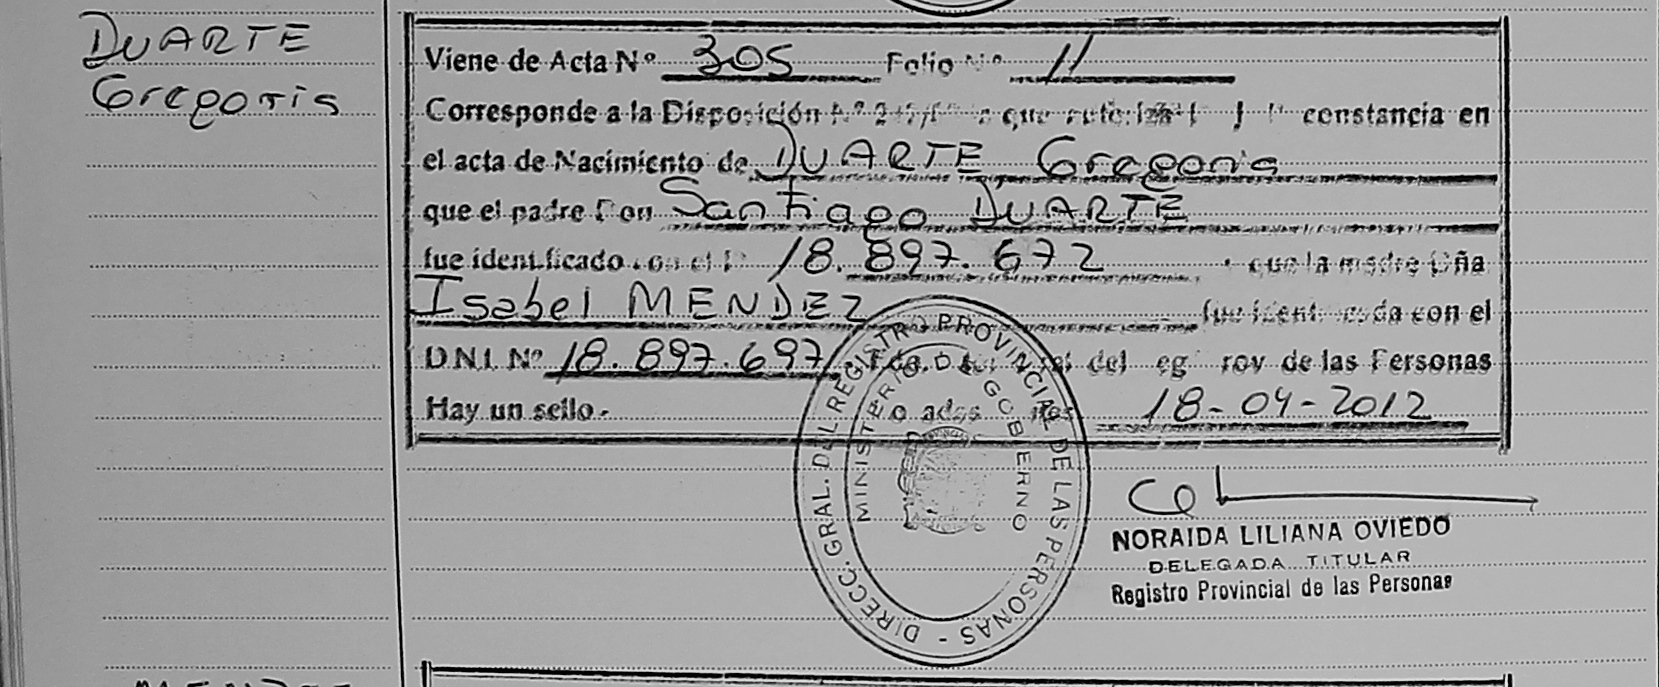 DUARTE
Gregoria
Viene de Acta Nº 305 Folio Nº 11
Corresponde a la Disposición Nº que constancia en
el acta de Nacimiento de DUARTE Gregoria
que el padre Don Santiago DUARTE
fue identificado con el 18.897.672 que la madre Dña
Isabel MENDEZ fue identificada con el
DNI. Nº 18.897.697 Fdo. del de las Personas
Hay un sello.- 18-04-2012
DIRECC. GRAL. DEL REGISTRO PROVINCIAL DE LAS PERSONAS -
MINISTERIO DE GOBIERNO
NORAIDA LILIANA OVIEDO
DELEGADA TITULAR
Registro Provincial de las Personas